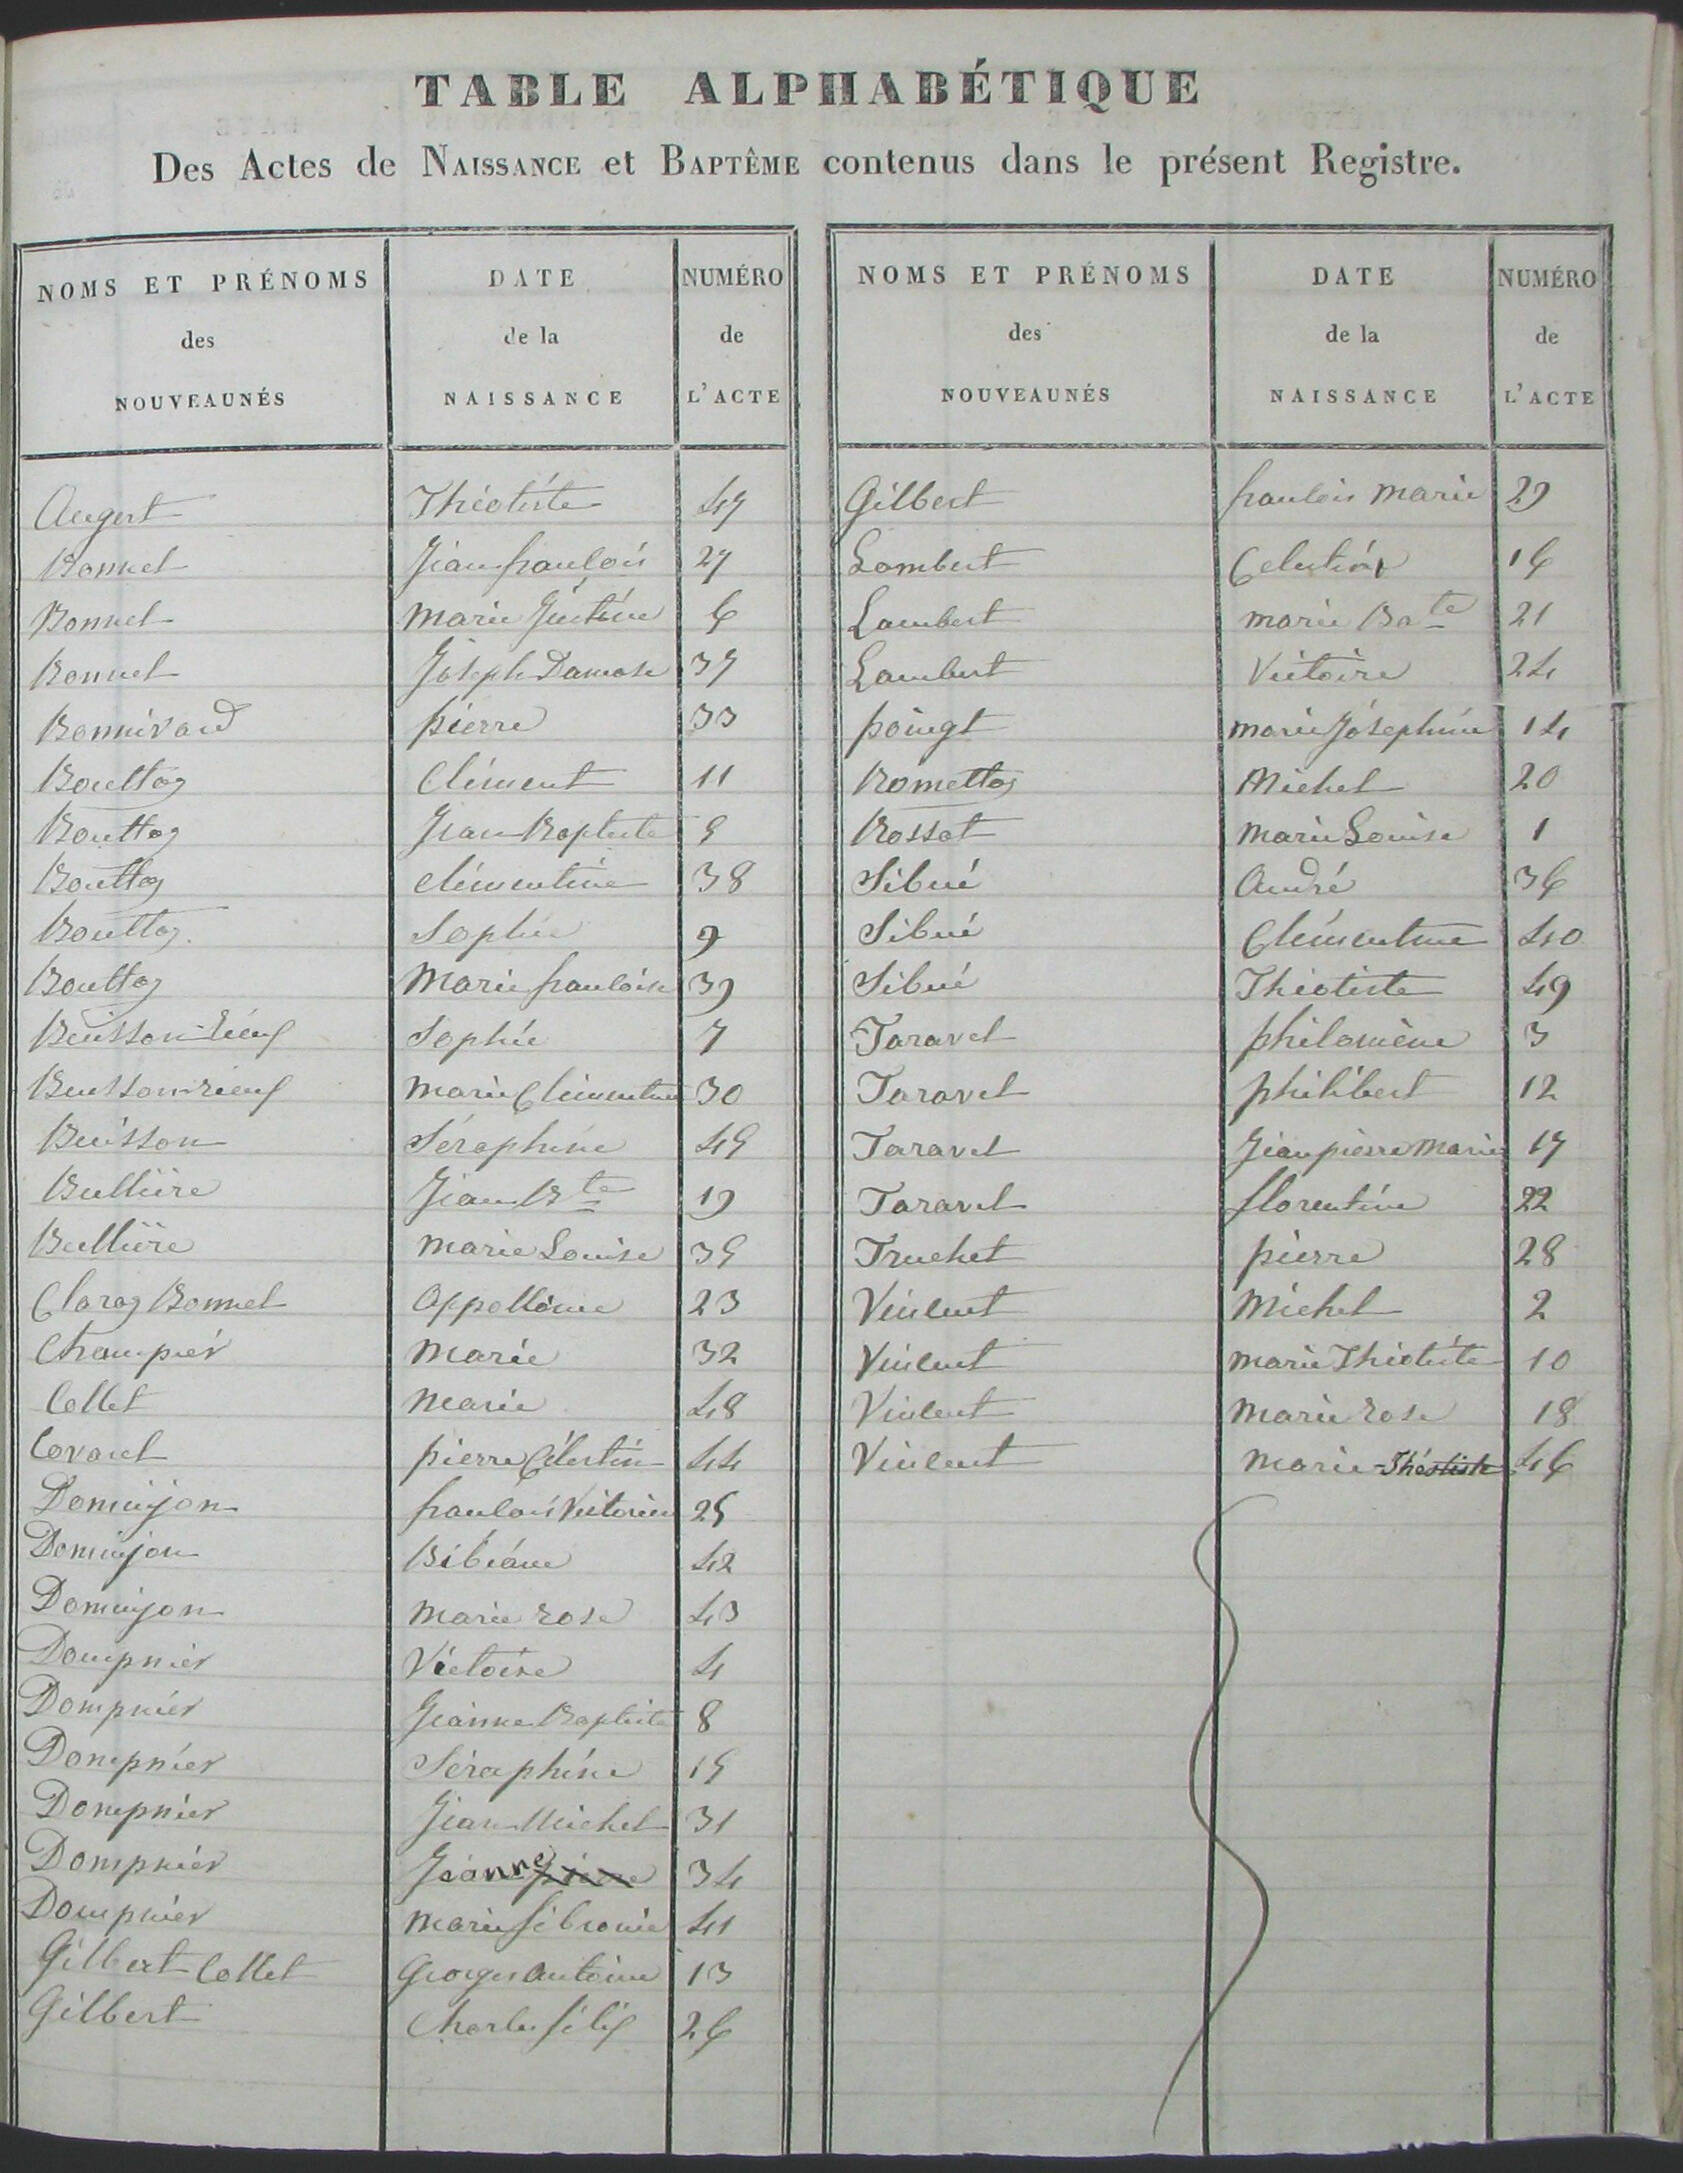 TABLE ALPHABÉTIQUE
Des Actes de NAISSANCE et BAPTÊME contenus dans le présent Registre.
NOMS ET PRÉNOMS
des
NOUVEAUNÉS
DATE
de la
NAISSANCE
NUMÉRO
de
L'ACTE
Augert Théotiste 47
Bonnel Jean françois 27
Bonnel marie Justine 6
Bonnel Joseph Damase 37
Bonnivard pierre 33
Bouttaz Clément 11
Bouttaz Jean Baptiste 5
Bouttaz clémentine 38
Bouttaz Sophie 9
Bouttaz Marie françoise 39
Buisson-rieuf Sophie 7
Buisson-rieuf marie Clémentine 30
Buisson Séraphine 45
Bullière Jean Bte 19
Bullière marie Louise 35
Claraz Bonnel Appollonie 23
Champier marie 32
Collet marie 48
Covarel pierre Célestin 44
Dominjon françois Victorien 25
Dominjon Bibiane 42
Dominjon marie rose 43
Dompnier Victoire 4
Dompnier Jeanne Baptiste 8
Dompnier Séraphine 15
Dompnier Jean Michel 31
Dompnier Jeanne pierre 34
Dompnier marie fébronie 41
Gilbert Collet Georges Antoine 13
Gilbert Charles félix 26
NOMS ET PRÉNOMS
des
NOUVEAUNÉS
DATE
de la
NAISSANCE
NUMÉRO
de
L'ACTE
Gilbert françois marie 29
Lambert Celestin 16
Lambert marie Bate 21
Lambert Victoire 24
poingt marie Joséphine 14
Romettaz Michel 20
Rossat marie Louise 1
Sibué André 36
Sibué Clémentine 40
Sibué Théotiste 49
Taravel philomène 3
Taravel philibert 12
Taravel Jean pierre marie 17
Taravel florentine 22
Truchet pierre 28
Vincent Michel 2
Vincent marie Théotiste 10
Vincent marie rose 18
Vincent marie Théotiste 46